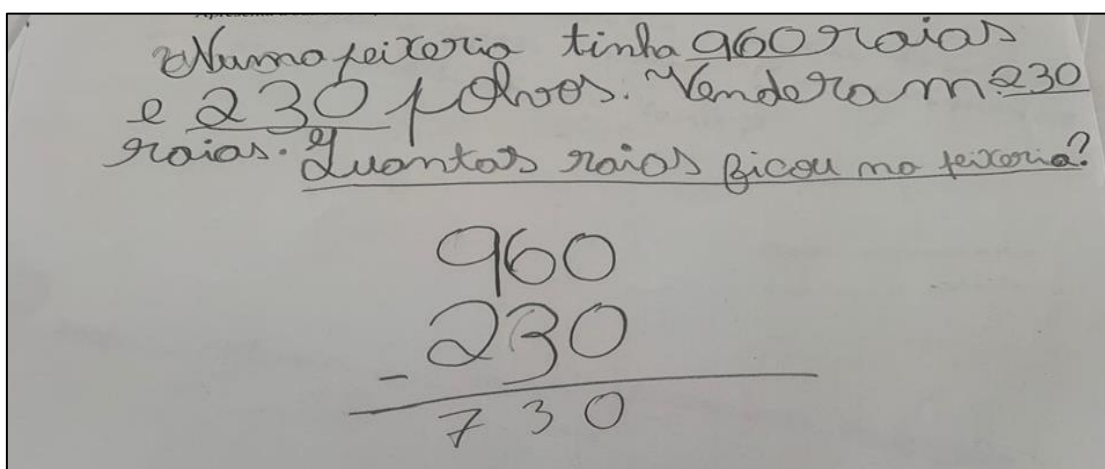 Numa peixeria tinha 960 raias
e 230 polvos. Venderam 230
raias. Quantas raias ficou na peixeria?
960
230
-
7 3 0